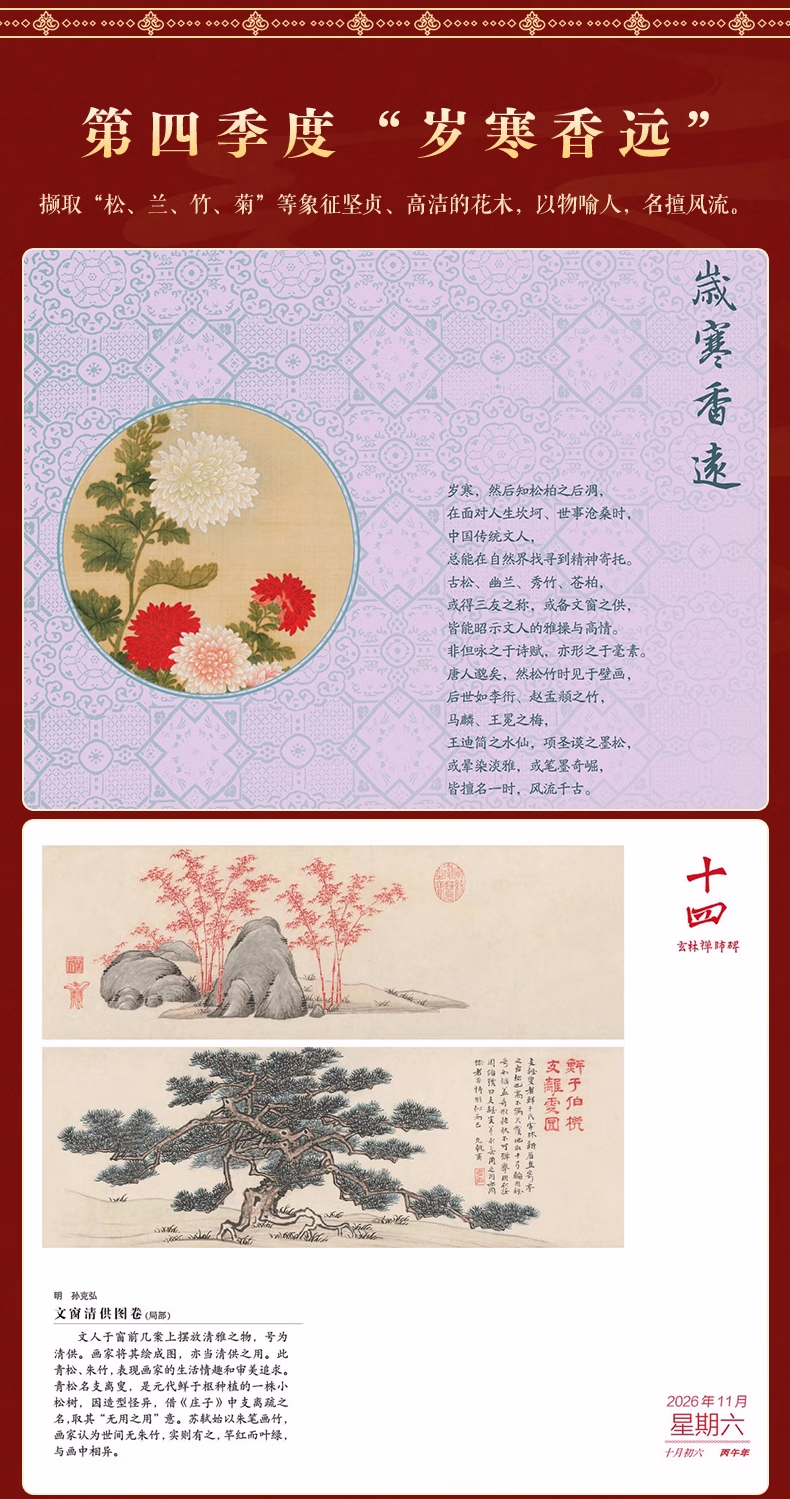 第四季度“岁寒香远”
撷取“松、兰、竹、菊”等象征坚贞、高洁的花木，以物喻人，名擅风流。
歲寒香遠
岁寒，然后知松柏之后凋，
在面对人生坎坷、世事沧桑时，
中国传统文人，
总能在自然界找寻到精神寄托。
古松、幽兰、秀竹、苍柏，
或得三友之称，或备文窗之供，
皆能昭示文人的雅操与高情。
非但咏之于诗赋，亦形之于毫素。
唐人邈矣，然松竹时见于壁画，
后世如李衎、赵孟頫之竹，
马麟、王冕之梅，
王迪简之水仙，项圣谟之墨松，
或晕染淡雅，或笔墨奇崛，
皆擅名一时，风流千古。
十四
玄林禅师碑
鲜于伯機
支離叟圖
明 孙克弘
文窗清供图卷(局部)
文人于窗前几案上摆放清雅之物，号为
清供。画家将其绘成图，亦当清供之用。此
青松、朱竹，表现画家的生活情趣和审美追求。
青松名支离叟，是元代鲜于枢种植的一株小
松树，因造型怪异，借《庄子》中支离疏之
名，取其“无用之用”意。苏轼始以朱笔画竹，
画家认为世间无朱竹，实则有之，竿红而叶绿，
与画中相异。
2026年11月
星期六
十月初六 丙午年